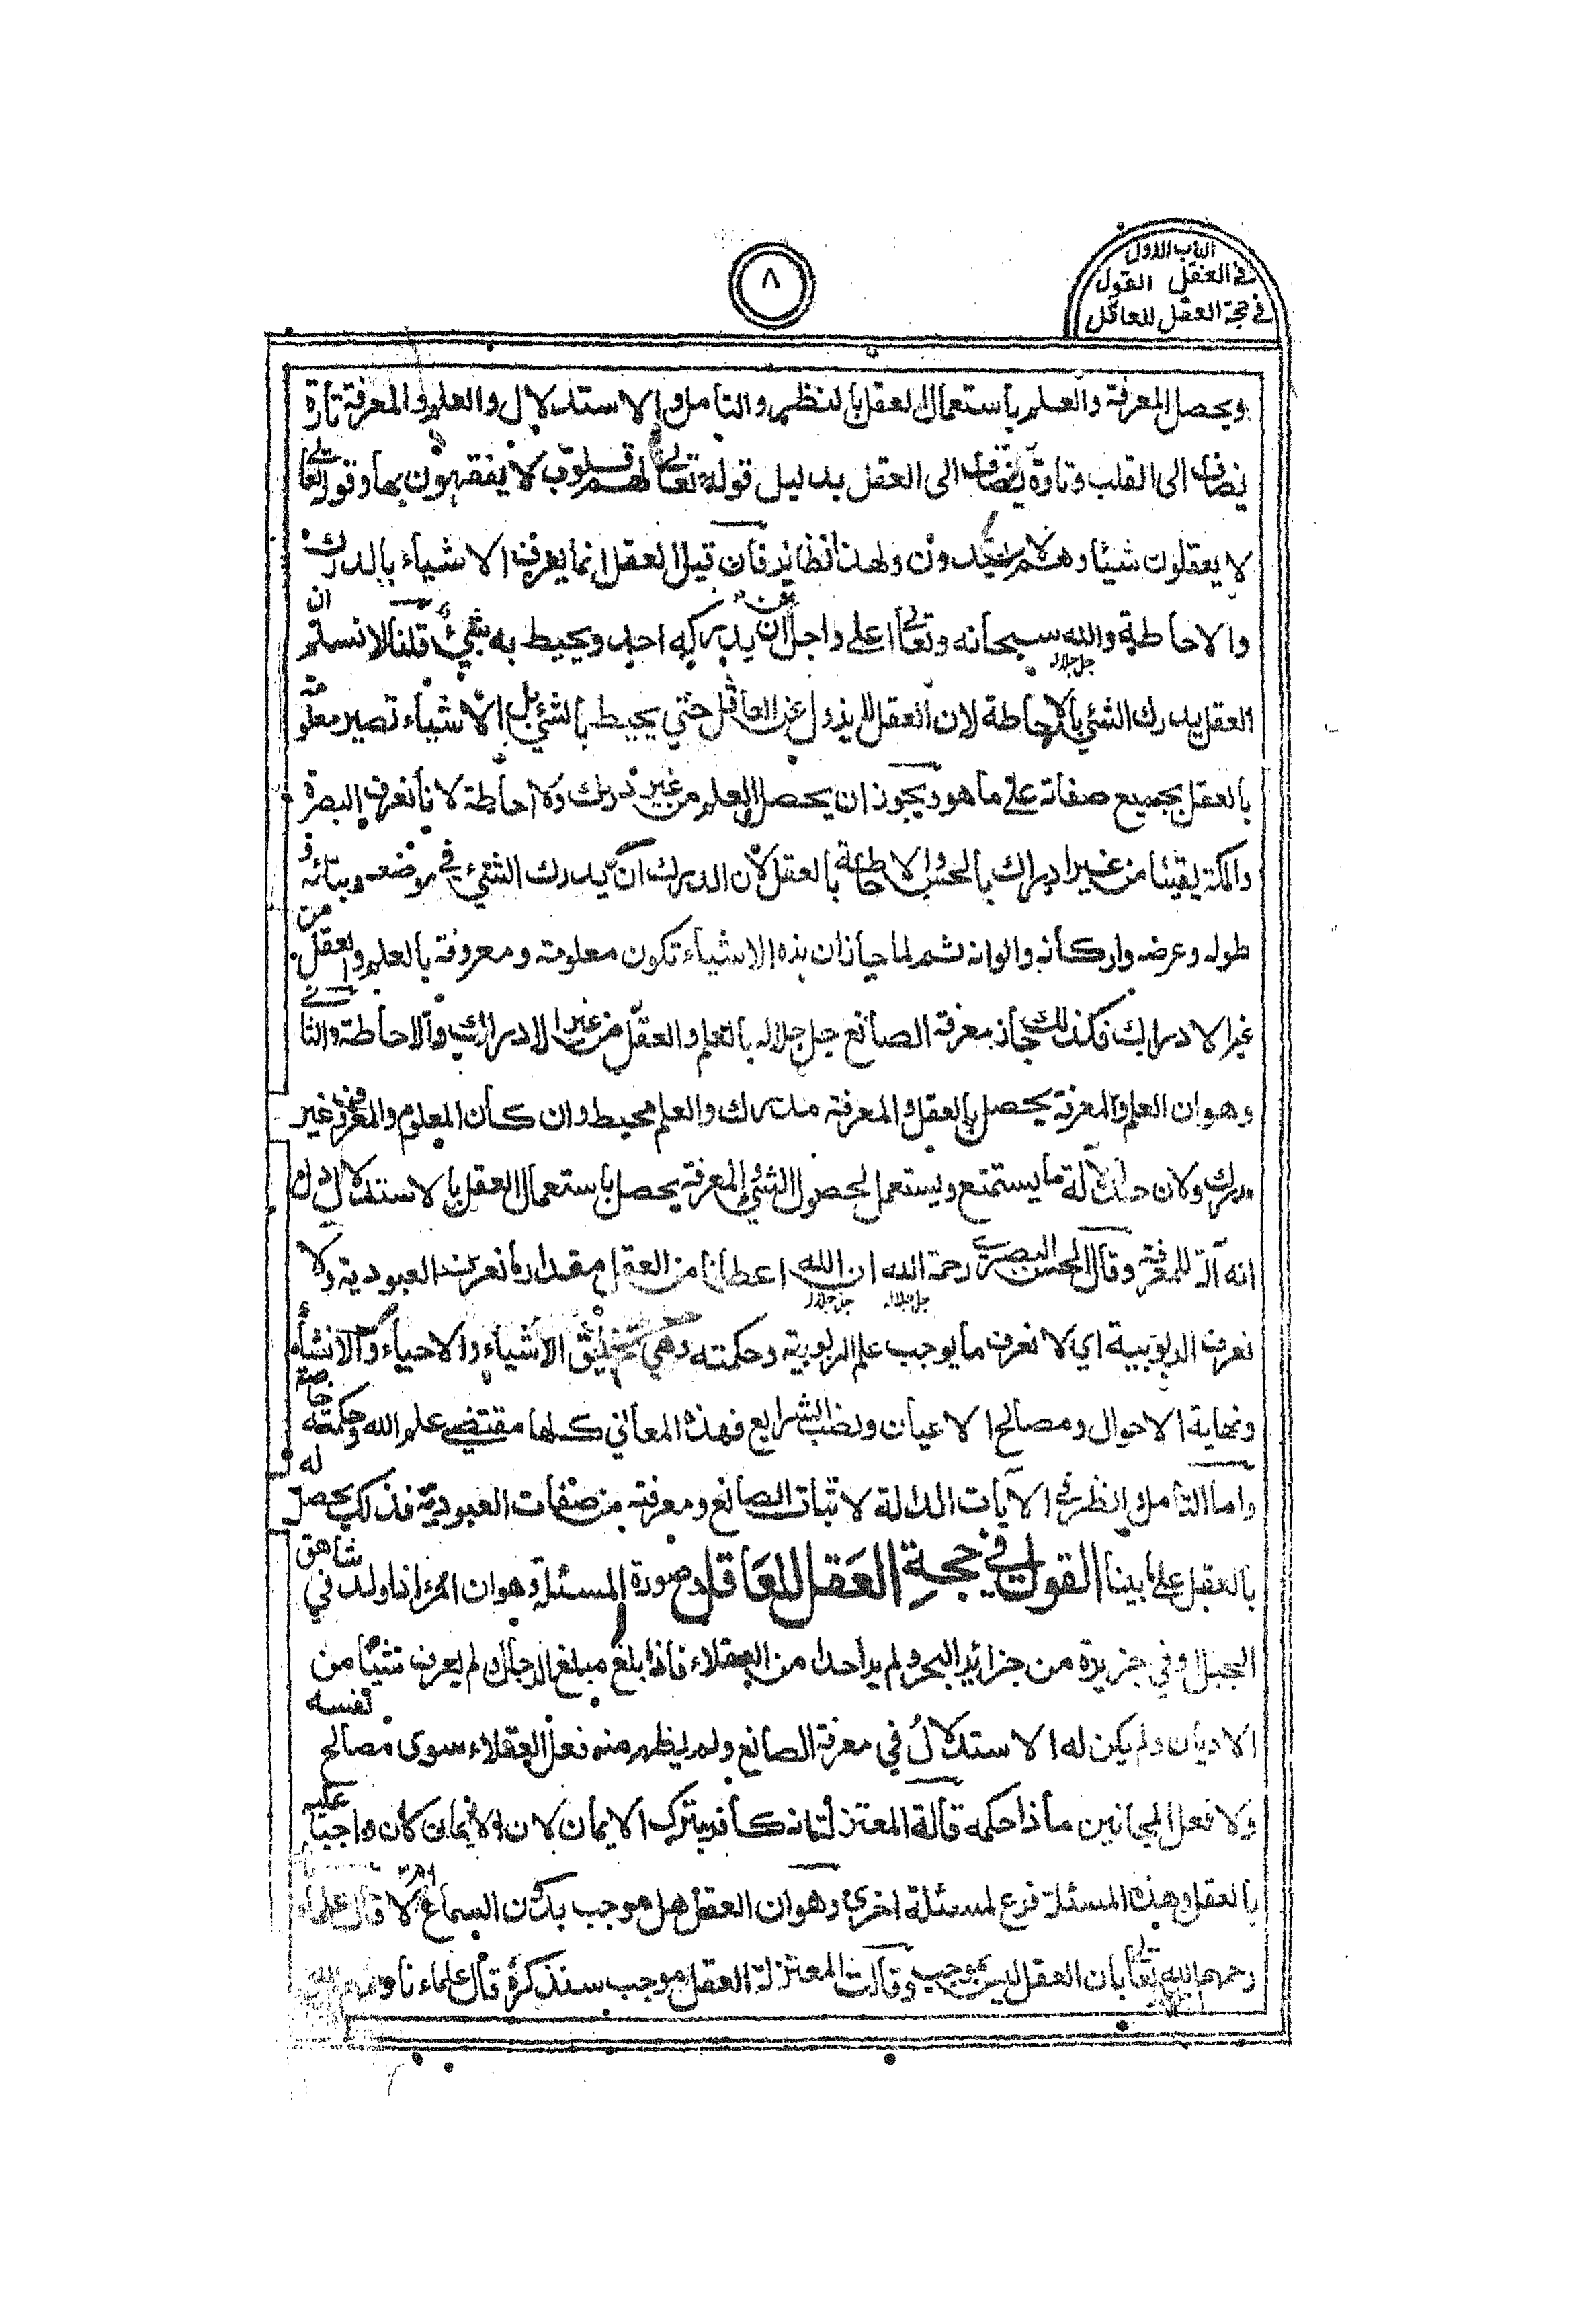 الباب الاول
في العقل القول
في حجة العقل للعاقل
٨
ويحصل المعرفة والعلم باستعمال العقل بالنظر والتامل والاستدلال والعلم والمعرفة تارة
يضاف الى القلب وتارة يضاف الى العقل بدليل قوله تعالى لهم قلوب لا يفقهون بها وقوله تعالى
لا يعقلون شيئا ولا هم يهتدون ولهذا نظائر فان قيل العقل انما يعرف الاشياء بالدرك
والاحاطة والله سبحانه وتعالى اعلى واجل من ان يدركه احد ويحيط به شيء قلنا لا نسلم ان
جل جلاله
العقل يدرك الشئ بالاحاطة لان العقل لا يزول عن العاقل حتى يحيط بالشئ بل الاشياء تصير معلومة
بالعقل بجميع صفاته على ما هو ويجوز ان يحصل العلم من غير درك ولا احاطة لانا نعرف البصرة
والمكة يقينا من غير ادراك بالحس والاحاطة بالعقل لان الدرك ان يدرك الشئ في موضعه وبيانه و
طوله وعرضه واركانه والوانه ثم لما جاز ان هذه الاشياء تكون معلومة ومعروفة بالعلم والعقل من
غير الادراك فكذلك جاز معرفة الصانع جل جلاله بالعلم والعقل من غير الادراك والاحاطة والثاني
وهو ان العلم والمعرفة يحصل بالعقل والمعرفة مدرك والعلم محيط وان كان المعلوم والمعروف غير
مدرك ولان حد الآلة ما يستمتع ويستعمل لحصول الشئ والمعرفة يحصل باستعمال العقل بالاستدلال دل
انه آلة للمعرفة وقال الحسن البصري رحمة الله ان الله اعطانا من العقل مقدار ما نعرف العبودية ولا
جل جلاله جل جلاله
نعرف الربوبية اي لا نعرف ما يوجب علم الربوبية وحكمته وهي تخليق الاشياء والاحياء والانشاء
ونهاية الاحوال ومصالح الاعيان ونصب الشرايع فهذه المعاني كلها مقتضى علم الله وحكمته خاصة
واما التامل والنظر في الآيات الدالة لاثبات الصانع ومعرفته من صفات العبودية فذلك يحصل له
بالعقل على ما بينا القول في حجة العقل للعاقل وصورة المسئلة وهو ان المرء اذا ولد في شاهق
الجبل وفي جزيرة من جزائر البحر ولم ير احدا من العقلاء فاذا بلغ مبلغ الرجال ولم يعرف شيئا من
الاديان ولم يكن له الاستدلال في معرفة الصانع ولم يظهر منه فعل العقلاء سوى مصالح نفسه
ولا فعل المجانين ماذا حكمه قالة المعتزلة انه كافر بترك الايمان لان الايمان كان واجبا عليه
بالعقل وهذه المسئلة فرع لمسئلة اخرى وهو ان العقل هل موجب بدون السماع ام لا قال علماء
رحمهم الله تعالى بان العقل ليس بموجب وقالت المعتزلة العقل موجب سنذكره قال علماءنا